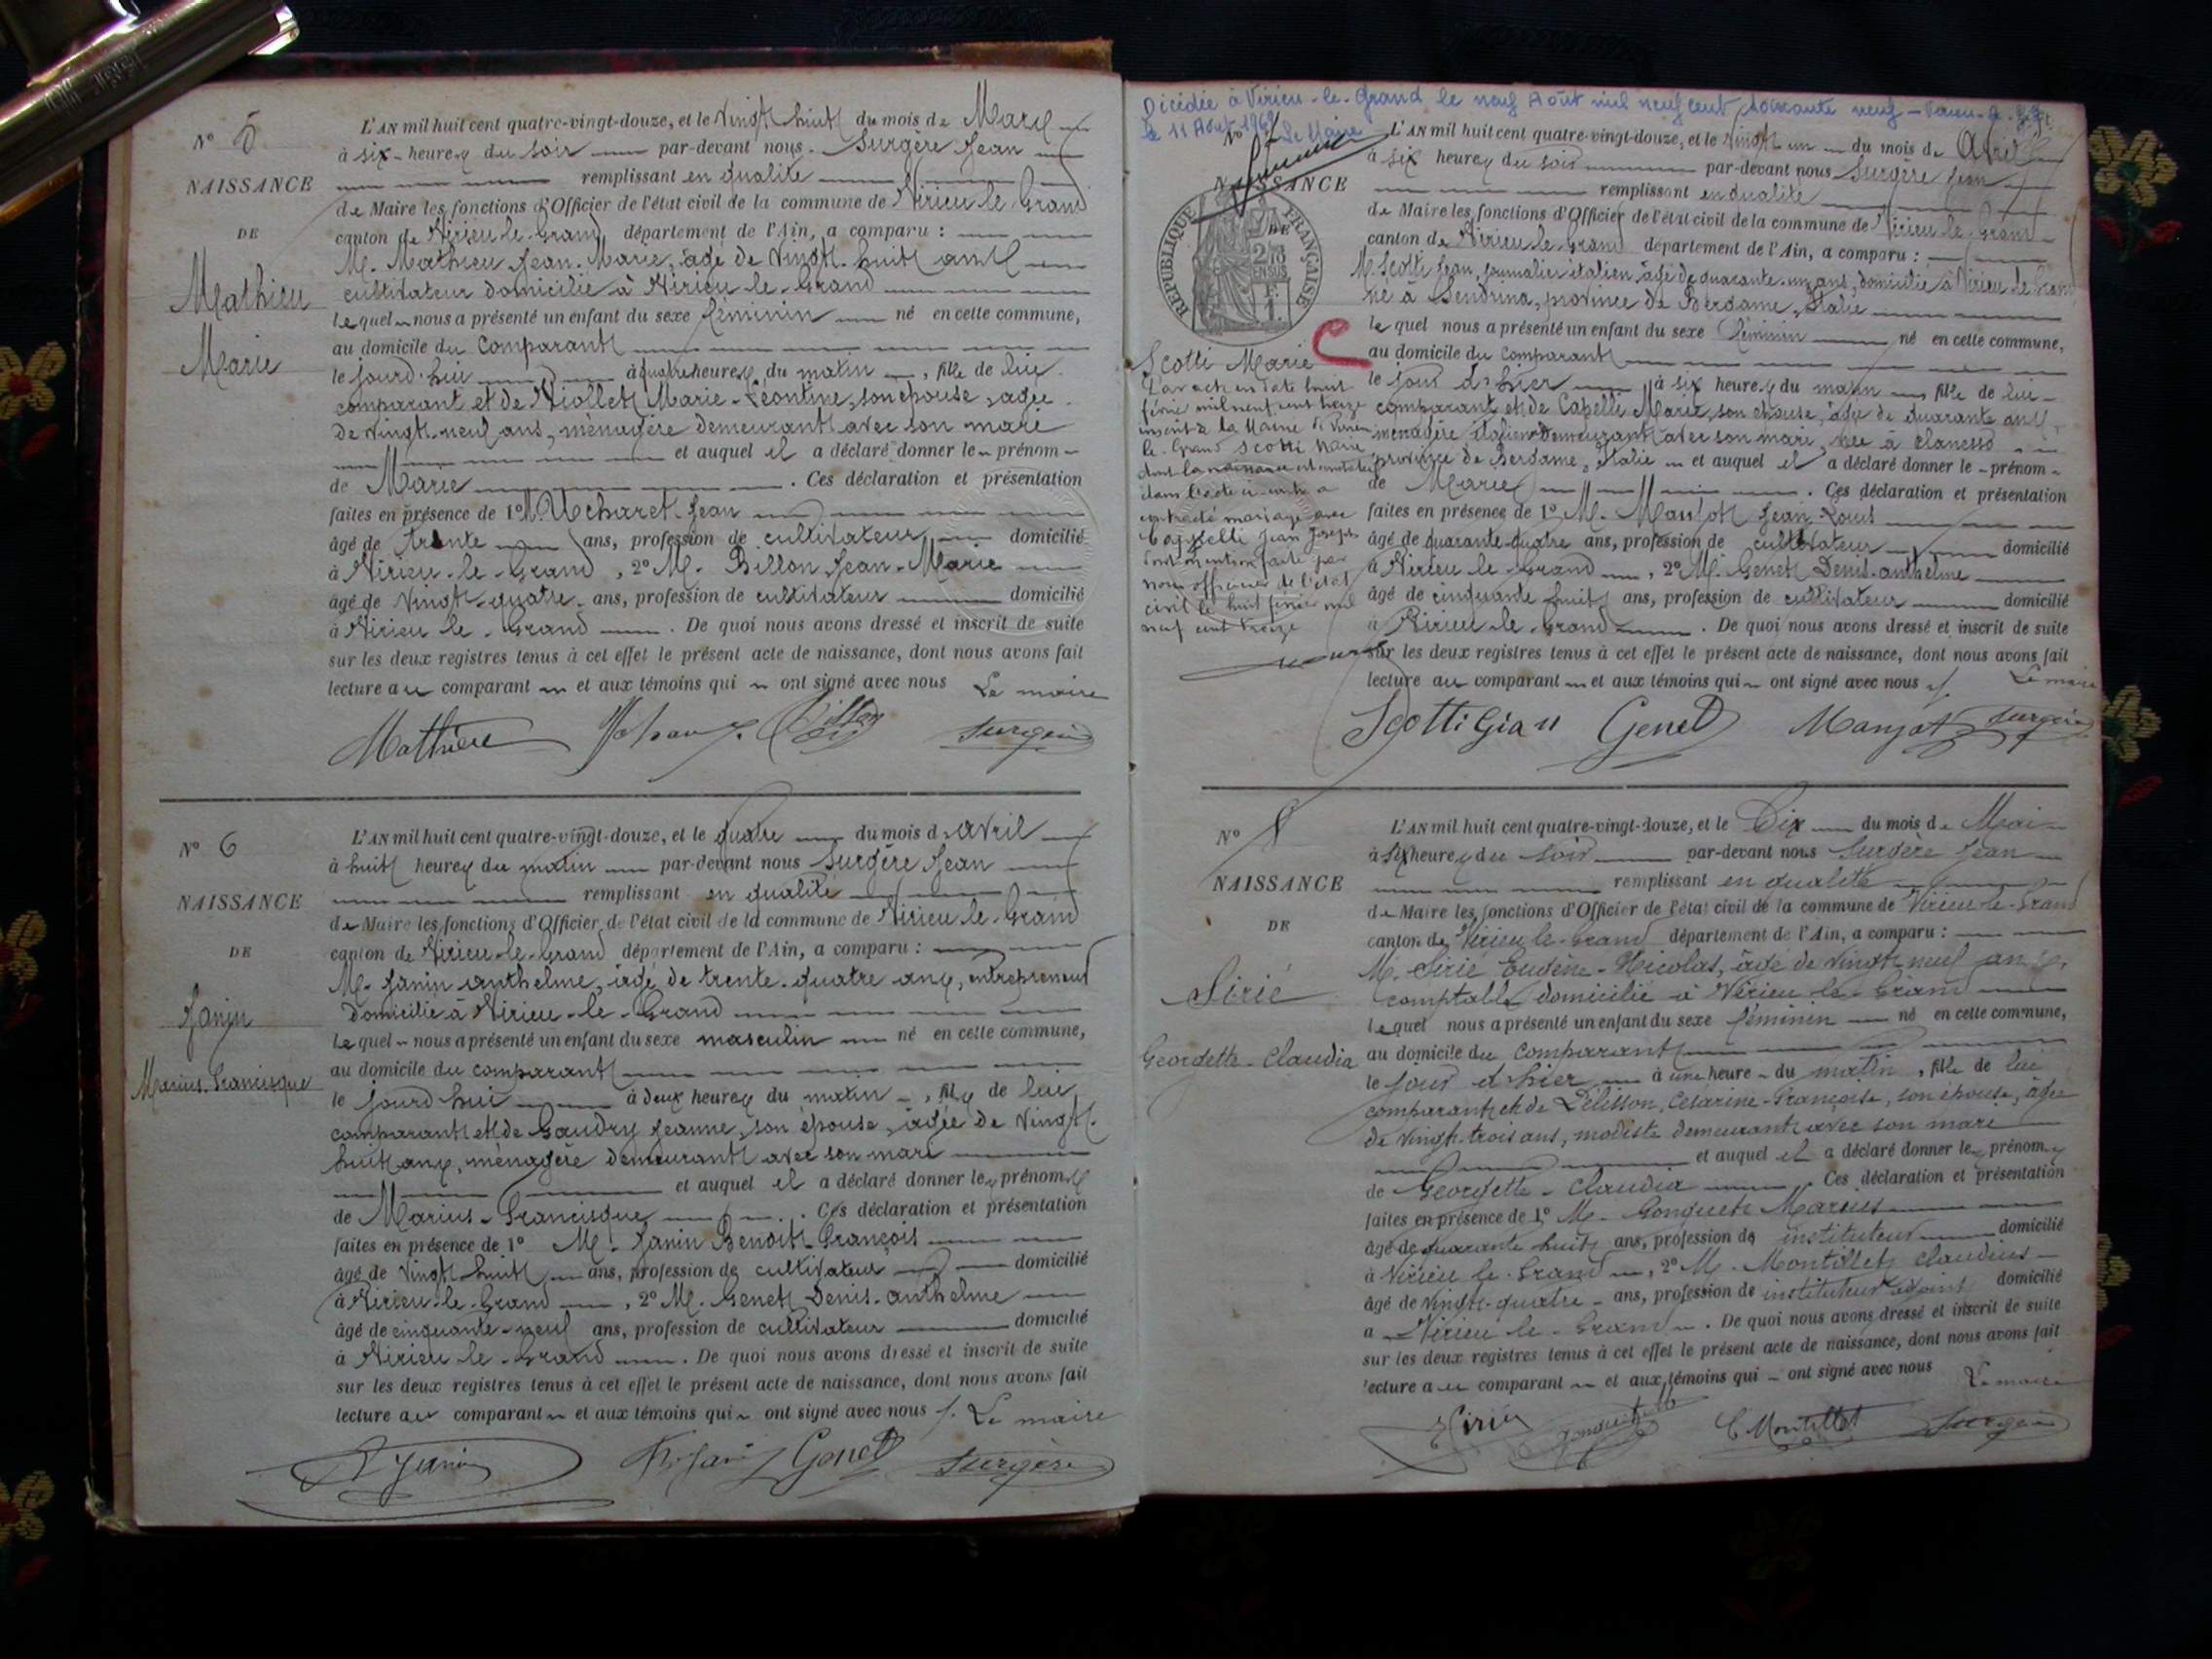 N° 5
NAISSANCE
DE
Mathieu
Marie
L'AN mil huit cent quatre-vingt-douze, et le Vingt huit du mois de Mars
à six heures du soir par-devant nous Surgère Jean
remplissant en qualité
de Maire les fonctions d'Officier de l'état civil de la commune de Virieu le Grand
canton de Virieu-le-Grand département de l'Ain, a comparu :
M. Mathieu Jean-Marie, âgé de Vingt-huit ans
cultivateur domicilié à Virieu-le-Grand
lequel nous a présenté un enfant du sexe féminin né en cette commune,
au domicile du comparant
le jourd'hui à quatre heures du matin, fille de lui
comparant et de Viollet Marie-Léontine, son épouse, âgée
de vingt-neuf ans, ménagère demeurant avec son mari
et auquel il a déclaré donner le prénom
de Marie. Ces déclaration et présentation
faites en présence de 1° M. Ucharet Jean
âgé de trente ans, profession de cultivateur domicilié
à Virieu-le-Grand, 2° M. Billon Jean-Marie
âgé de Vingt-quatre ans, profession de cultivateur domicilié
à Virieu le Grand. De quoi nous avons dressé et inscrit de suite
sur les deux registres tenus à cet effet le présent acte de naissance, dont nous avons fait
lecture au comparant et aux témoins qui ont signé avec nous Le maire
Mathieu Billon Surgère
N° 6
NAISSANCE
DE
Janin
Marius-Francisque
L'AN mil huit cent quatre-vingt-douze, et le quatre du mois d'avril
à huit heures du matin par-devant nous Surgère Jean
remplissant en qualité
de Maire les fonctions d'Officier de l'état civil de la commune de Virieu-le-Grand
canton de Virieu-le-Grand département de l'Ain, a comparu :
M. Janin anthelme, âgé de trente-quatre ans, entrepreneur
domicilié à Virieu-le-Grand
lequel nous a présenté un enfant du sexe masculin né en cette commune,
au domicile du comparant
le jourd'hui à deux heures du matin, fils de lui
comparant et de Gaudry Jeanne, son épouse, âgée de Vingt-
huit ans, ménagère demeurant avec son mari
et auquel il a déclaré donner les prénoms
de Marius-Francisque. Ces déclaration et présentation
faites en présence de 1° M. Janin Benoit François
âgé de Vingt huit ans, profession de cultivateur domicilié
à Virieu-le-Grand, 2° M. Genet Denis-anthelme
âgé de cinquante-neuf ans, profession de cultivateur domicilié
à Virieu le Grand. De quoi nous avons dressé et inscrit de suite
sur les deux registres tenus à cet effet le présent acte de naissance, dont nous avons fait
lecture au comparant et aux témoins qui ont signé avec nous. Le maire
Janin Genet Surgère
Décédée à Virieu-le-Grand le neuf Août mil neuf cent soixante neuf - Virieu-le-Gd
le 11 Août 1969 Le Maire
N°
NAISSANCE
DE
RÉPUBLIQUE FRANÇAISE
2/10 EN SUS
Scotti Marie
Par acte en date huit
février mil neuf cent treize
inscrit à la Mairie de Virieu
le Grand Scotti Marie
dont la naissance est constatée
dans l'acte ci-contre a
contracté mariage avec
Capelli Jean Joseph
Dont mention faite par
nous officier de l'état
civil le huit février mil
neuf cent treize
L'AN mil huit cent quatre-vingt-douze, et le vingt un du mois de Avril
à six heures du soir par-devant nous Surgère Jean
remplissant en qualité
de Maire les fonctions d'Officier de l'état civil de la commune de Virieu le Grand
canton de Virieu-le-Grand département de l'Ain, a comparu :
M. Scotti Jean, journalier italien âgé de quarante-un ans, domicilié à Virieu-le-Grand
né à Sendrina, province de Bergame, Italie
lequel nous a présenté un enfant du sexe féminin né en cette commune,
au domicile du comparant
le jour d'hier à six heures du matin fille de lui
comparant et de Capelli Marie, son épouse, âgée de quarante ans,
ménagère italienne demeurant avec son mari, née à Clanesso
province de Bergame, Italie et auquel il a déclaré donner le prénom
de Marie. Ces déclaration et présentation
faites en présence de 1° M. Manjot Jean Louis
âgé de quarante quatre ans, profession de cultivateur domicilié
à Virieu le Grand, 2° M. Genet Denis-anthelme
âgé de cinquante huit ans, profession de cultivateur domicilié
à Virieu-le-Grand. De quoi nous avons dressé et inscrit de suite
sur les deux registres tenus à cet effet le présent acte de naissance, dont nous avons fait
lecture au comparant et aux témoins qui ont signé avec nous. Le maire
Scotti Gian Genet Manjot Surgère
N° 8
NAISSANCE
DE
Sirié
Georgette-Claudia
L'AN mil huit cent quatre-vingt-douze, et le Dix du mois de Mai
à six heures du soir par-devant nous Surgère Jean
remplissant en qualité
de Maire les fonctions d'Officier de l'état civil de la commune de Virieu-le-Grand
canton de Virieu le Grand département de l'Ain, a comparu :
M. Sirié Eugène-Nicolas, âgé de vingt neuf ans,
comptable domicilié à Virieu-le-Grand
lequel nous a présenté un enfant du sexe féminin né en cette commune,
au domicile du comparant
le jour d'hier à une heure du matin, fille de lui
comparant et de Pélisson, Césarine-Françoise, son épouse, âgée
de vingt-trois ans, modiste demeurant avec son mari
et auquel il a déclaré donner les prénoms
de Georgette-Claudia. Ces déclaration et présentation
faites en présence de 1° M. Gonguet Marius
âgé de quarante huit ans, profession de instituteur domicilié
à Virieu le Grand, 2° M. Montillet Claudius
âgé de vingt-quatre ans, profession de instituteur adjoint domicilié
a Virieu-le-Grand. De quoi nous avons dressé et inscrit de suite
sur les deux registres tenus à cet effet le présent acte de naissance, dont nous avons fait
lecture au comparant et aux témoins qui ont signé avec nous Le maire
Sirié C. Montillet Surgère